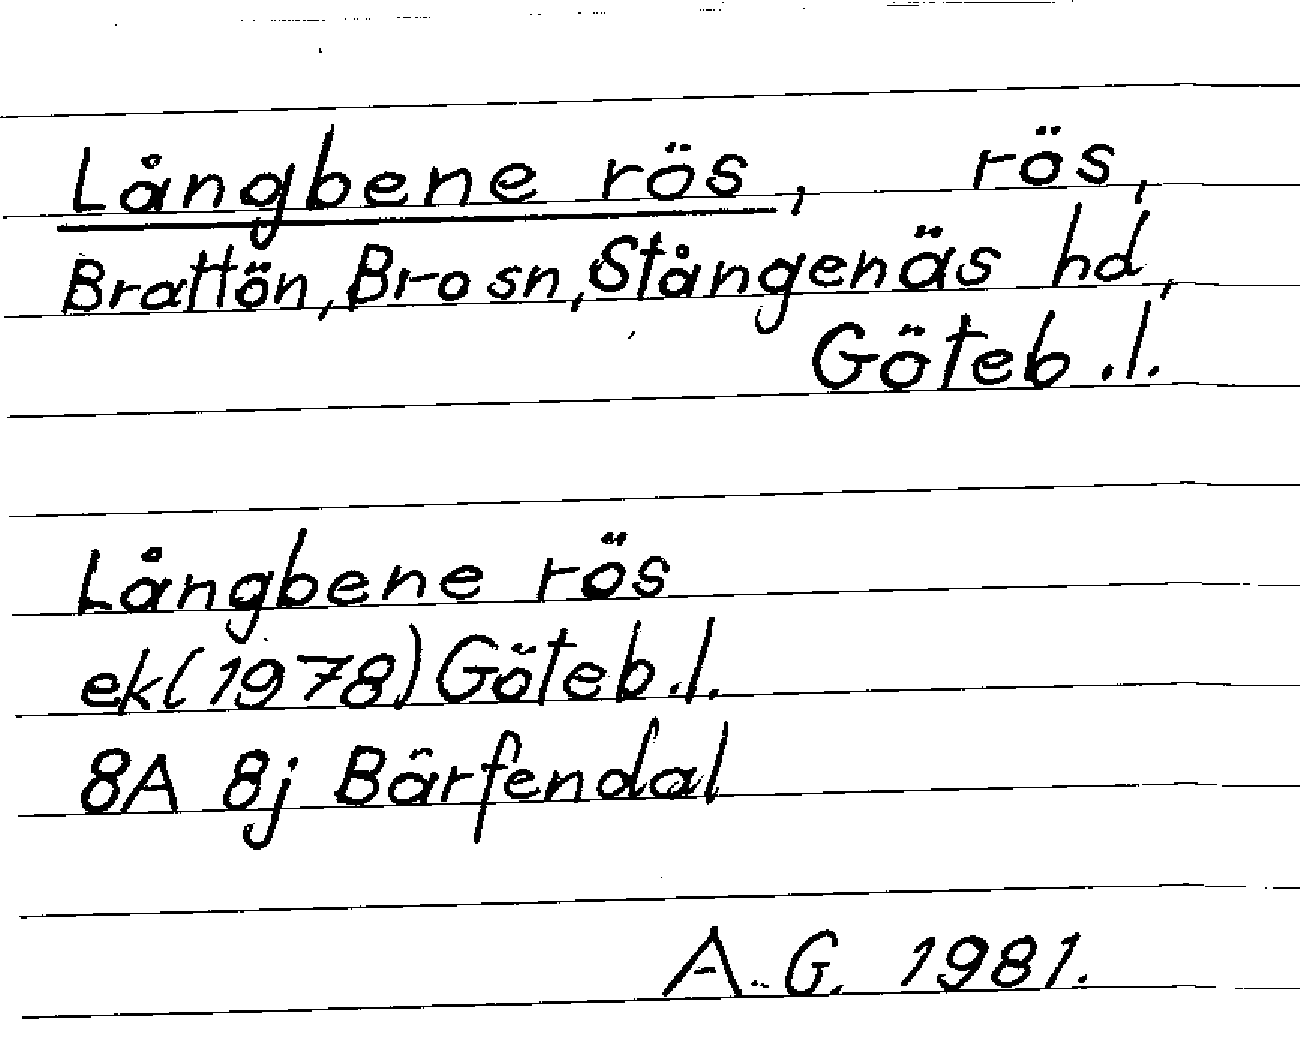 Långbene rös, rös,
Brattön, Bro sn, Stångenäs hd,
Göteb.l.
Långbene rös
ek(1978) Göteb.l.
8A 8j Bärfendal
A.G. 1981.